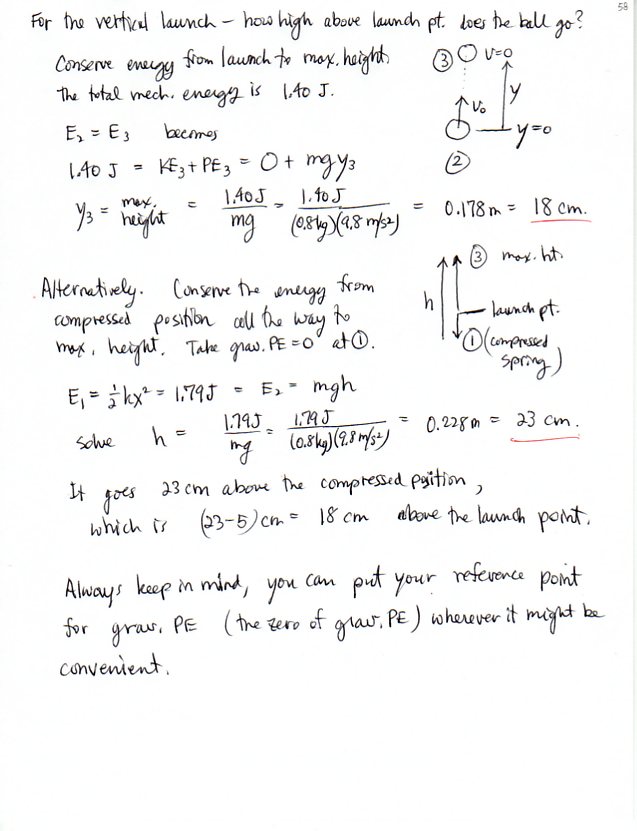 58
For the vertical launch – how high above launch pt. does the ball go?
Conserve energy from launch to max. height.
The total mech. energy is 1.40 J.
③ v=0
y
v₀
y=0
②
E₂ = E₃ becomes
1.40 J = KE₃ + PE₃ = 0 + mgy₃
y₃ = max. height = 1.40J / mg = 1.40 J / (0.8kg)(9.8 m/s²) = 0.178m = 18 cm.
③ max. ht.
h
launch pt.
① (compressed spring)
Alternatively. Conserve the energy from
compressed position all the way to
max. height. Take grav. PE = 0 at ①.
E₁ = ½kx² = 1.79J = E₂ = mgh
solve h = 1.79J / mg = 1.79 J / (0.8kg)(9.8 m/s²) = 0.228m = 23 cm.
It goes 23 cm above the compressed position,
which is (23-5)cm = 18 cm above the launch point.
Always keep in mind, you can put your reference point
for grav. PE (the zero of grav. PE) wherever it might be
convenient.